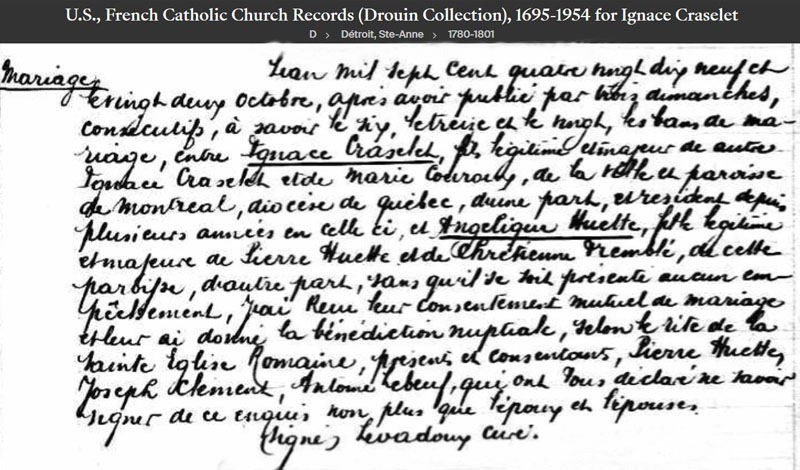 U.S., French Catholic Church Records (Drouin Collection), 1695-1954 for Ignace Craselet
D › Détroit, Ste-Anne › 1780-1801
Mariage,
L'an mil sept cent quatre vingt dix neuf et
le vingt deux octobre, après avoir publié par trois dimanches,
consécutifs, à savoir le six, le treize et le vingt, les bans de ma-
riage, entre Ignace Craselet, fils légitime et majeur de autre
Ignace Craselet et de Marie Couroux, de la ville et paroisse
de Montreal, diocèse de québec, d'une part, et resident depuis
plusieurs années en celle ci, et Angelique Huette, fille légitime
et majeure de Pierre Huette et de Chrétienne Tremblé, de cette
paroisse, d'autre part, sans qu'il se soit présenté aucun em-
pêchement, J'ai Recu leur consentement mutuel de mariage
et leur ai donné la bénédiction nuptiale, selon le rite de la
Sainte Eglise Romaine, présens et consentans, Pierre Huette,
Joseph Clement, Antoine Lebeuf, qui ont tous déclaré ne savoir
signer de ce enquis non plus que l'époux et l'épouse.
(signé) Levadoux Curé.